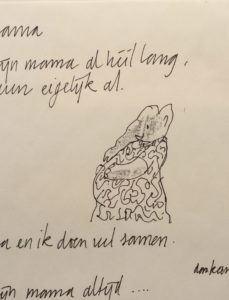 mama
ijn mama al héél lang,
eigelijk al.
a en ik doen veel samen.
ijn mama altijd ....